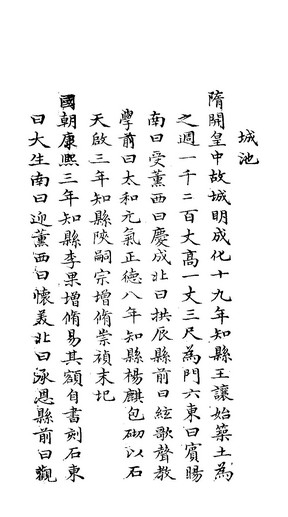 城池
隋開皇中故城明成化十九年知縣王讓始築土為
之週一千二百丈高一丈三尺為門六東曰賓暘
南曰受薰西曰慶成北曰拱辰縣前曰絃歌聲教
學前曰太和元氣正德八年知縣楊麒包砌以石
天啟三年知縣陝嗣宗增脩崇禎末圮
國朝康熙三年知縣李果增脩易其額自書刻石東
曰大生南曰迎薰西曰懷美北曰承恩縣前曰觀